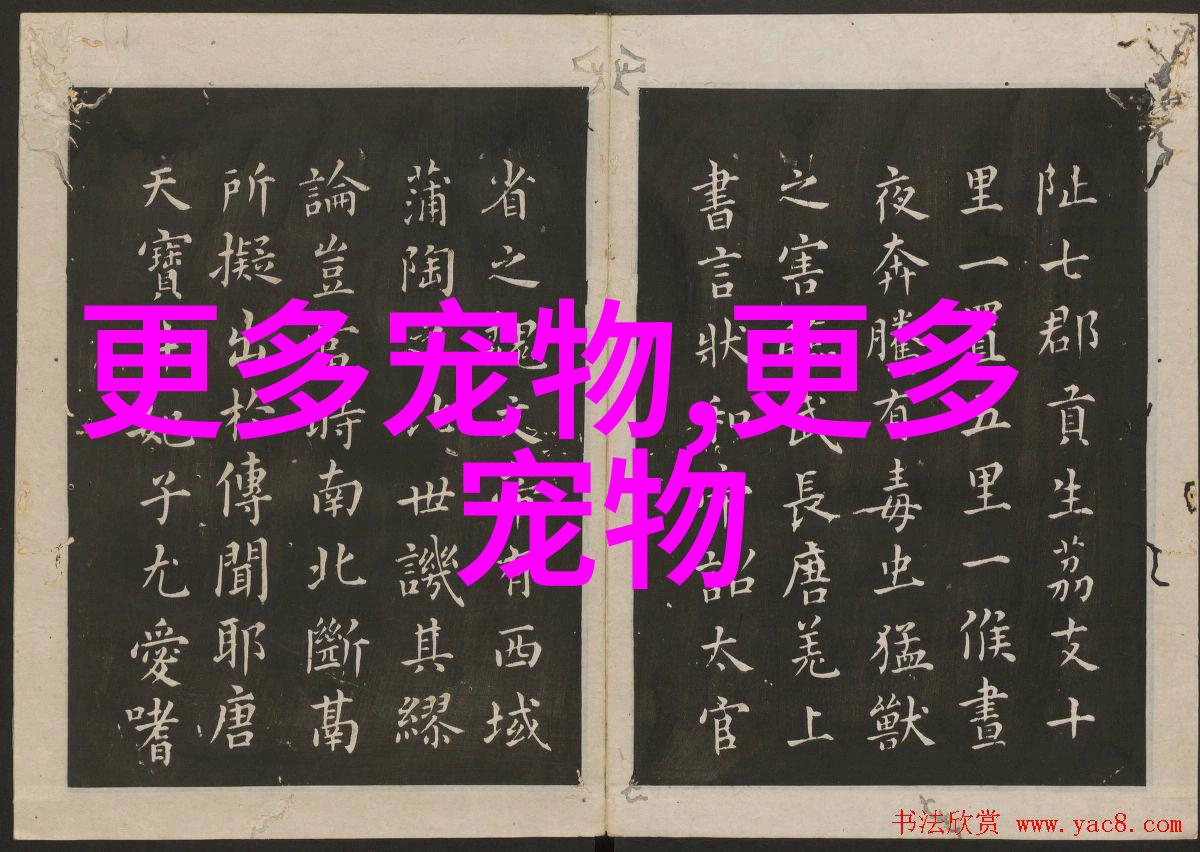 更多宠物,更多
宠物
阯七郡貢生荔支十
里一置五里一候晝
夜奔騰有毒虫猛獸
之害武長唐羌上
書言狀和詔太官
省之魏文有西域
蒲陶之比世譏其繆
論豈當時南北斷
所擬出於傳聞耶唐
天寶妃子尤愛嗜
书法欣赏 www.yac8.com